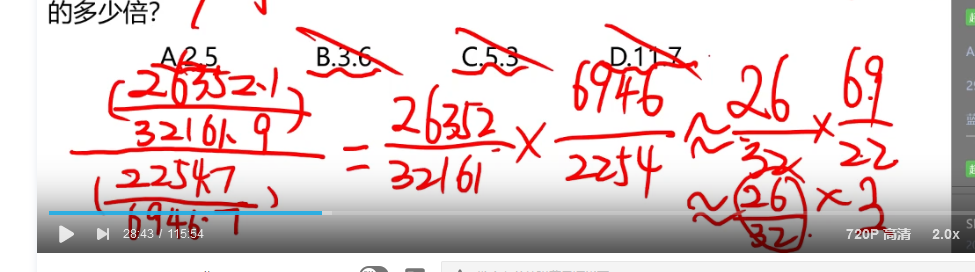 的多少倍?
A.2.5 B.3.6 C.5.3 D.11.7
(26352.1 / 32161.9) / (2254.7 / 6946.7) = 26352 / 32161 × 6946 / 2254 ≈ 26 / 32 × 6.9 / 22
≈ (26 / 32) × 3
28:43 / 115:54 720P 高清 2.0x